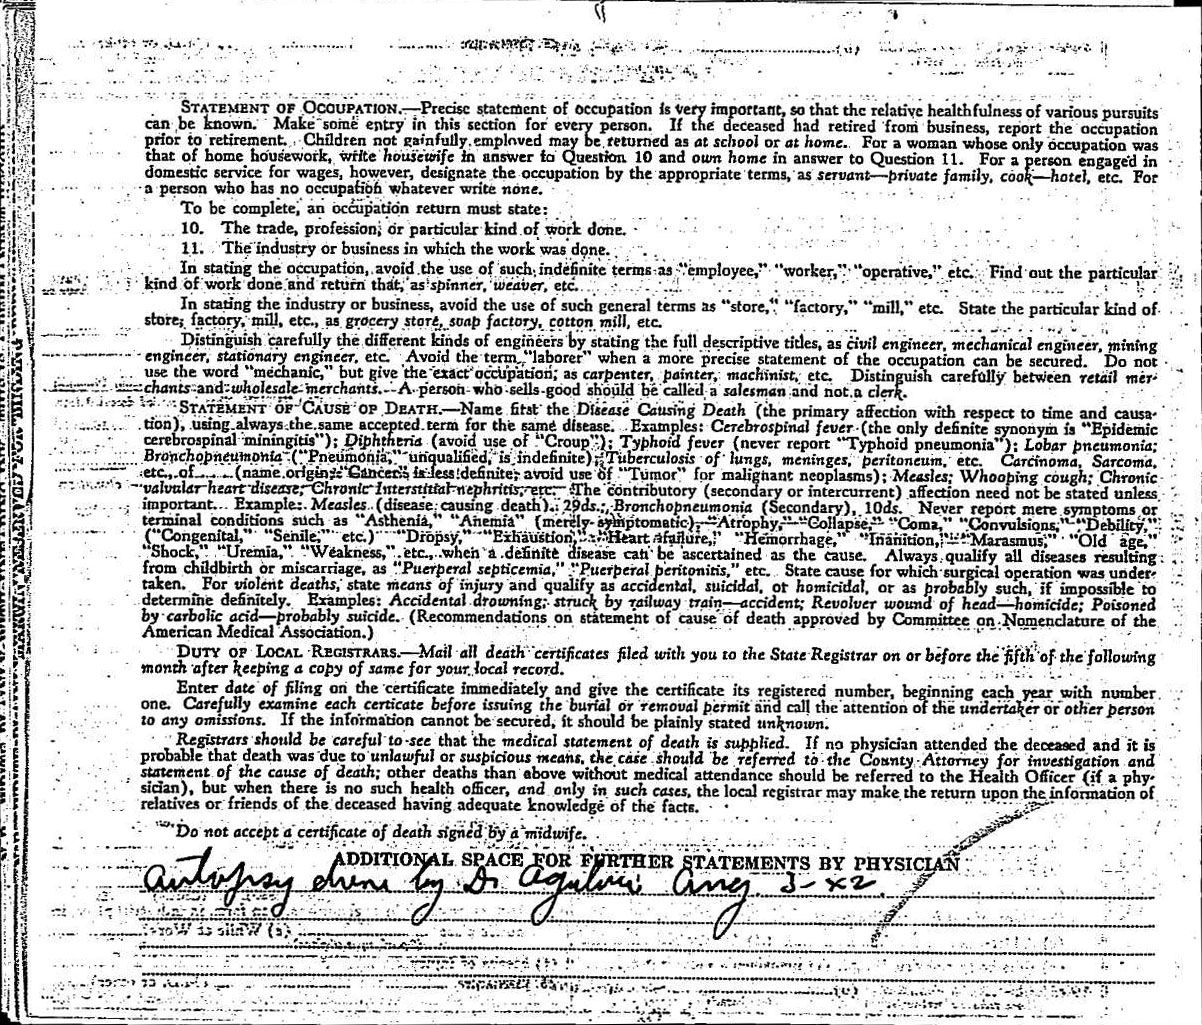 STATEMENT OF OCCUPATION.—Precise statement of occupation is very important, so that the relative healthfulness of various pursuits
can be known. Make some entry in this section for every person. If the deceased had retired from business, report the occupation
prior to retirement. Children not gainfully employed may be returned as at school or at home. For a woman whose only occupation was
that of home housework, write housewife in answer to Question 10 and own home in answer to Question 11. For a person engaged in
domestic service for wages, however, designate the occupation by the appropriate terms, as servant—private family, cook—hotel, etc. For
a person who has no occupation whatever write none.
To be complete, an occupation return must state:
10. The trade, profession, or particular kind of work done.
11. The industry or business in which the work was done.
In stating the occupation, avoid the use of such indefinite terms as "employee," "worker," "operative," etc. Find out the particular
kind of work done and return that, as spinner, weaver, etc.
In stating the industry or business, avoid the use of such general terms as "store," "factory," "mill," etc. State the particular kind of
store, factory, mill, etc., as grocery store, soap factory, cotton mill, etc.
Distinguish carefully the different kinds of engineers by stating the full descriptive titles, as civil engineer, mechanical engineer, mining
engineer, stationary engineer, etc. Avoid the term "laborer" when a more precise statement of the occupation can be secured. Do not
use the word "mechanic," but give the exact occupation, as carpenter, painter, machinist, etc. Distinguish carefully between retail mer-
chants and wholesale merchants. A person who sells good should be called a salesman and not a clerk.
STATEMENT OF CAUSE OF DEATH.—Name first the Disease Causing Death (the primary affection with respect to time and causa-
tion), using always the same accepted term for the same disease. Examples: Cerebrospinal fever (the only definite synonym is "Epidemic
cerebrospinal miningitis"); Diphtheria (avoid use of "Croup"); Typhoid fever (never report "Typhoid pneumonia"); Lobar pneumonia;
Bronchopneumonia ("Pneumonia," unqualified, is indefinite); Tuberculosis of lungs, meninges, peritoneum, etc. Carcinoma, Sarcoma,
etc., of (name origin; "Cancer" is less definite; avoid use of "Tumor" for malignant neoplasms); Measles; Whooping cough; Chronic
valvular heart disease; Chronic Interstitial nephritis, etc. The contributory (secondary or intercurrent) affection need not be stated unless
important. Example: Measles (disease causing death), 29ds.; Bronchopneumonia (Secondary), 10ds. Never report mere symptoms or
terminal conditions such as "Asthenia," "Anemia" (merely symptomatic), "Atrophy," "Collapse," "Coma," "Convulsions," "Debility,"
("Congenital," "Senile," etc.) "Dropsy," "Exhaustion," "Heart failure," "Hemorrhage," "Inanition," "Marasmus," "Old age,"
"Shock," "Uremia," "Weakness," etc., when a definite disease can be ascertained as the cause. Always qualify all diseases resulting
from childbirth or miscarriage, as "Puerperal septicemia," "Puerperal peritonitis," etc. State cause for which surgical operation was under-
taken. For violent deaths, state means of injury and qualify as accidental, suicidal, or homicidal, or as probably such, if impossible to
determine definitely. Examples: Accidental drowning; struck by railway train—accident; Revolver wound of head—homicide; Poisoned
by carbolic acid—probably suicide. (Recommendations on statement of cause of death approved by Committee on Nomenclature of the
American Medical Association.)
DUTY OF LOCAL REGISTRARS.—Mail all death certificates filed with you to the State Registrar on or before the fifth of the following
month after keeping a copy of same for your local record.
Enter date of filing on the certificate immediately and give the certificate its registered number, beginning each year with number
one. Carefully examine each certicate before issuing the burial or removal permit and call the attention of the undertaker or other person
to any omissions. If the information cannot be secured, it should be plainly stated unknown.
Registrars should be careful to see that the medical statement of death is supplied. If no physician attended the deceased and it is
probable that death was due to unlawful or suspicious means, the case should be referred to the County Attorney for investigation and
statement of the cause of death; other deaths than above without medical attendance should be referred to the Health Officer (if a phy-
sician), but when there is no such health officer, and only in such cases, the local registrar may make the return upon the information of
relatives or friends of the deceased having adequate knowledge of the facts.
Do not accept a certificate of death signed by a midwife.
ADDITIONAL SPACE FOR FURTHER STATEMENTS BY PHYSICIAN
Autopsy done by Dr Aug 3-42